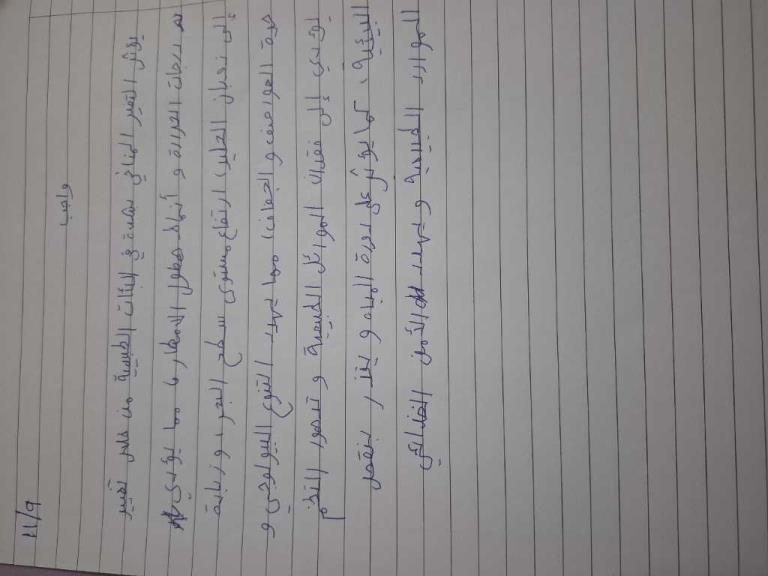 ١١/٩
واجب
يؤثر التغير المناخي بشدة في البيئات الطبيعية من خلال تغيير
درجات الحرارة و أنماط هطول الأمطار، مما يؤدي
إلى ذوبان الجليد، ارتفاع مستوى سطح البحر، وزيادة
حدة العواصف و الجفاف، مما يهدد التنوع البيولوجي و
يؤدي إلى فقدان الموائل الطبيعية و تدهور النظم
البيئية، كما يؤثر على دورة المياه و ينذر بنقص
الموارد الطبيعية و تهديد الأمن الغذائي